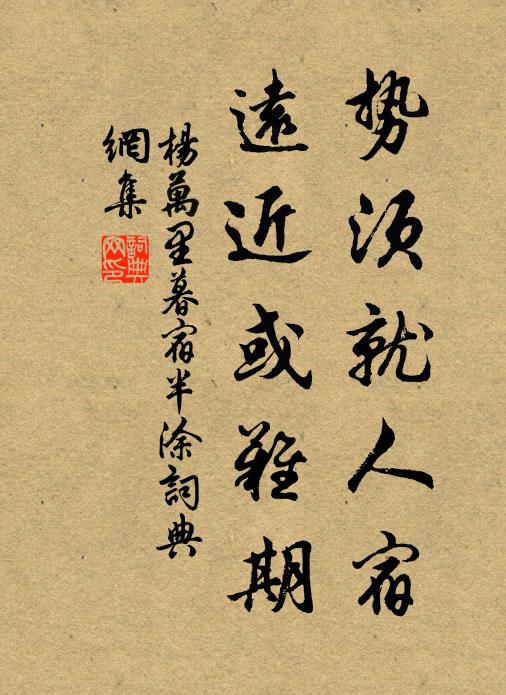 势须就人宿
遠近或難期
楊萬里暮宿半涂詞典
網集
詞典
网印